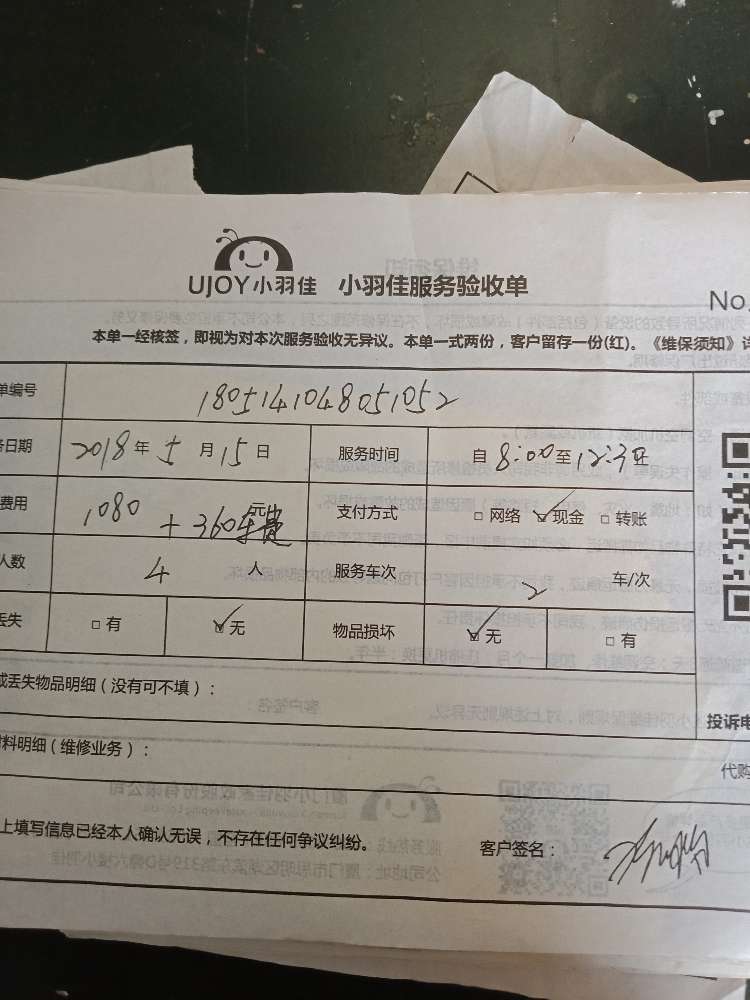 UJOY小羽佳 小羽佳服务验收单
No.
本单一经核签，即视为对本次服务验收无异议。本单一式两份，客户留存一份(红)。《维保须知》详
单编号 1805141048051052
务日期 2018年5月15日 服务时间 自8:00至12:30
费用 1080元 + 360车费 支付方式 □网络 ☑现金 □转账
人数 4人 服务车次 2 车/次
丢失 □有 ☑无 物品损坏 ☑无 □有
或丢失物品明细（没有可不填）：
投诉电
材料明细（维修业务）：
代购
上填写信息已经本人确认无误，不存在任何争议纠纷。 客户签名：